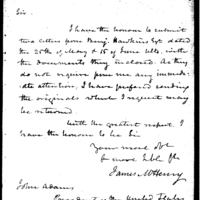 Sir
I have the honour to submit
two letters from Benj. Hawkins Esqr. dated
the 25th of May & 15 of June ulto. with
the Documents they inclosed. As they
do not require from me any immedi-
ate attention, I have prefered sending
the originals which I request may
be returned.
With the greatest respect I
have the honour to be Sir
Your most Obt
& most hble St
James McHenry
John Adams
President of the United States